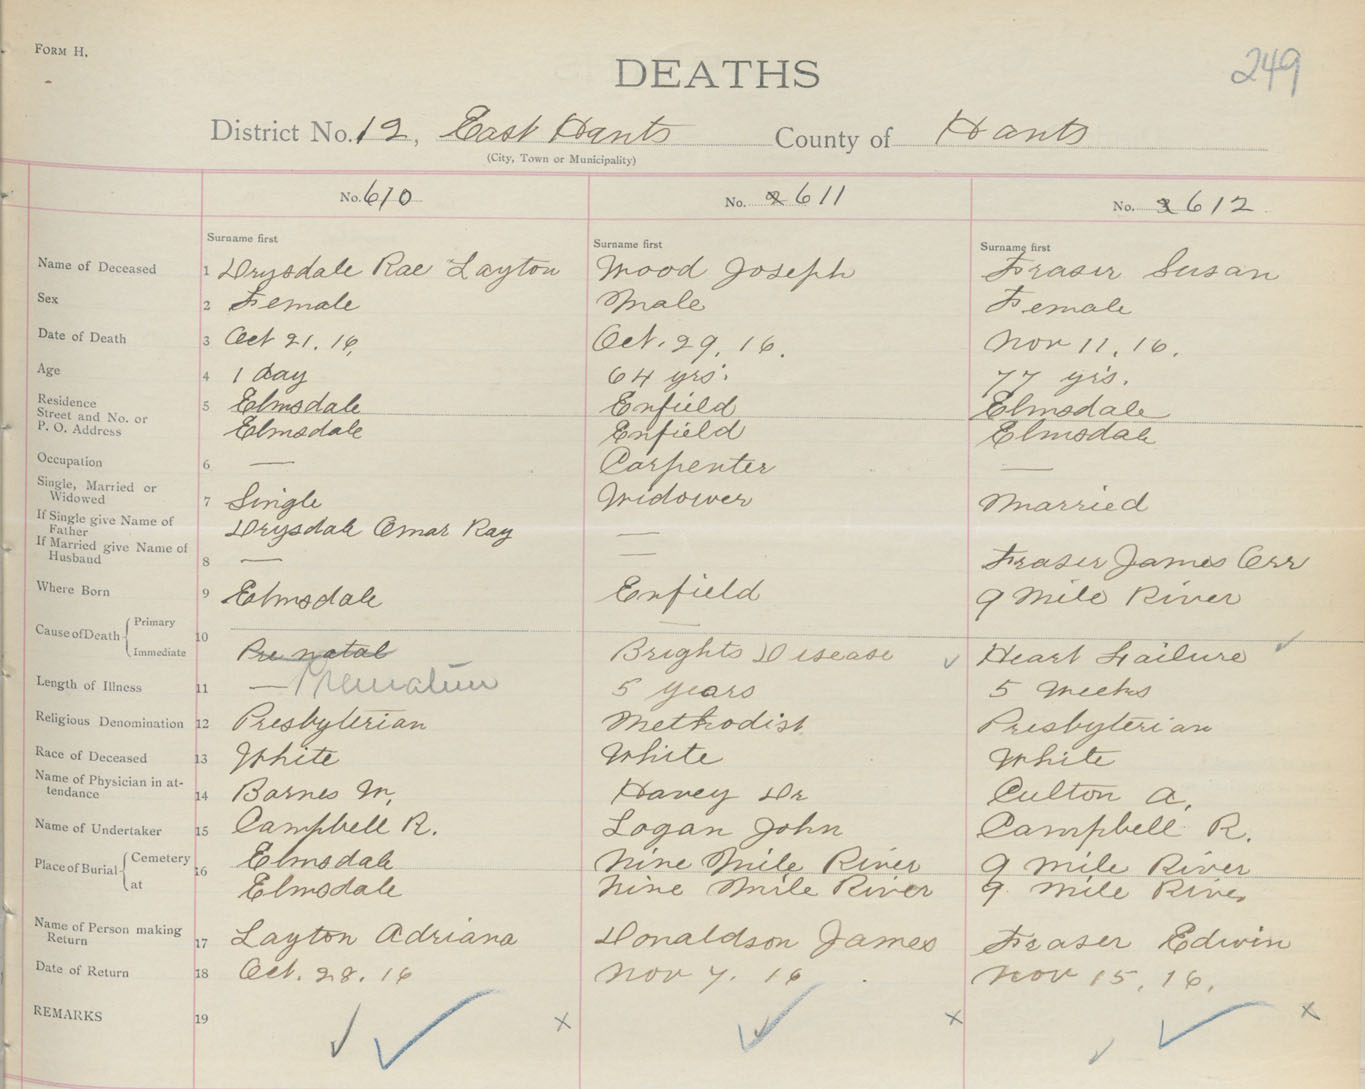 FORM H.
249
DEATHS
District No. 12, East Hants County of Hants
(City, Town or Municipality)
No. 610 No. 2 611 No. 3 612
Surname first Surname first Surname first
Name of Deceased 1 Drysdale Rae Layton Wood Joseph Fraser Susan
Sex 2 Female Male Female
Date of Death 3 Oct 21. 16. Oct. 29, 16. Nov 11, 16.
Age 4 1 day 64 yrs. 77 yrs.
Residence 5 Elmsdale Enfield Elmsdale
Street and No. or
P. O. Address Elmsdale Enfield Elmsdale
Occupation 6 — Carpenter —
Single, Married or
Widowed 7 Single Widower Married
If Single give Name of
Father Drysdale Omar Ray —
If Married give Name of
Husband 8 — — Fraser James Orr
Where Born 9 Elmsdale Enfield 9 Mile River
Cause of Death { Primary 10 —
Immediate Pre natal Brights Disease Heart Failure
Premature
Length of Illness 11 — 5 years 5 Weeks
Religious Denomination 12 Presbyterian Methodist Presbyterian
Race of Deceased 13 White White White
Name of Physician in at-
tendance 14 Barnes W, Havey Dr Culton A.
Name of Undertaker 15 Campbell R. Logan John Campbell R.
Place of Burial { Cemetery 16 Elmsdale Nine Mile River 9 Mile River
at Elmsdale Nine Mile River 9 Mile River
Name of Person making
Return 17 Layton Adriana Donaldson James Fraser Edwin
Date of Return 18 Oct. 28. 16 Nov 7. 16 Nov 15, 16.
REMARKS 19 x x x